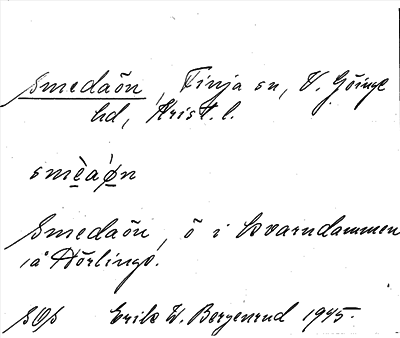 Smedaön, Finja sn, V. Göinge
hd, Krist. l.
smèa ́øn
Smedaön, ö i kvarndammen
i å Hörlinge.
Erik W. Borgenrud 1945.